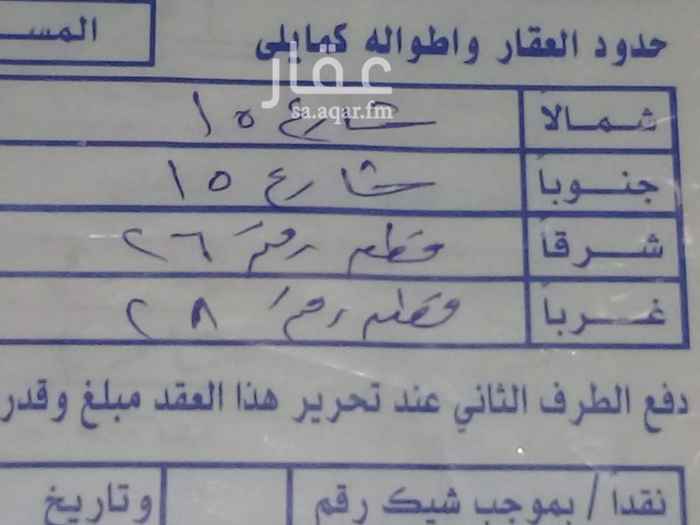 المسـ
حدود العقار واطواله كمايلي
عقار
sa.aqar.fm
شمالا شارع ١٥
جنوباً شارع ١٥
شرقاً قطعه رقم ٢٦
غرباً قطعه رقم ٢٨
دفع الطرف الثاني عند تحرير هذا العقد مبلغ وقدر
نقداً / بموجب شيك رقم وتاريخ